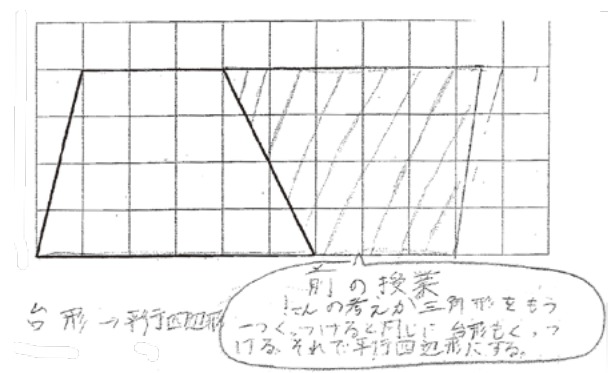 台形→平行四辺形
前の授業
さんの考えが三角形をもう
一つくっつけると同じに台形もくっつ
ける。それで平行四辺形にする。